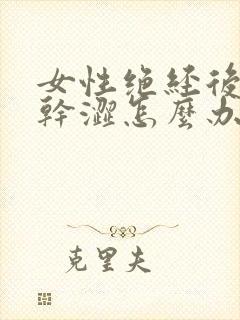 女性绝经後
幹澀怎麼办
克里夫